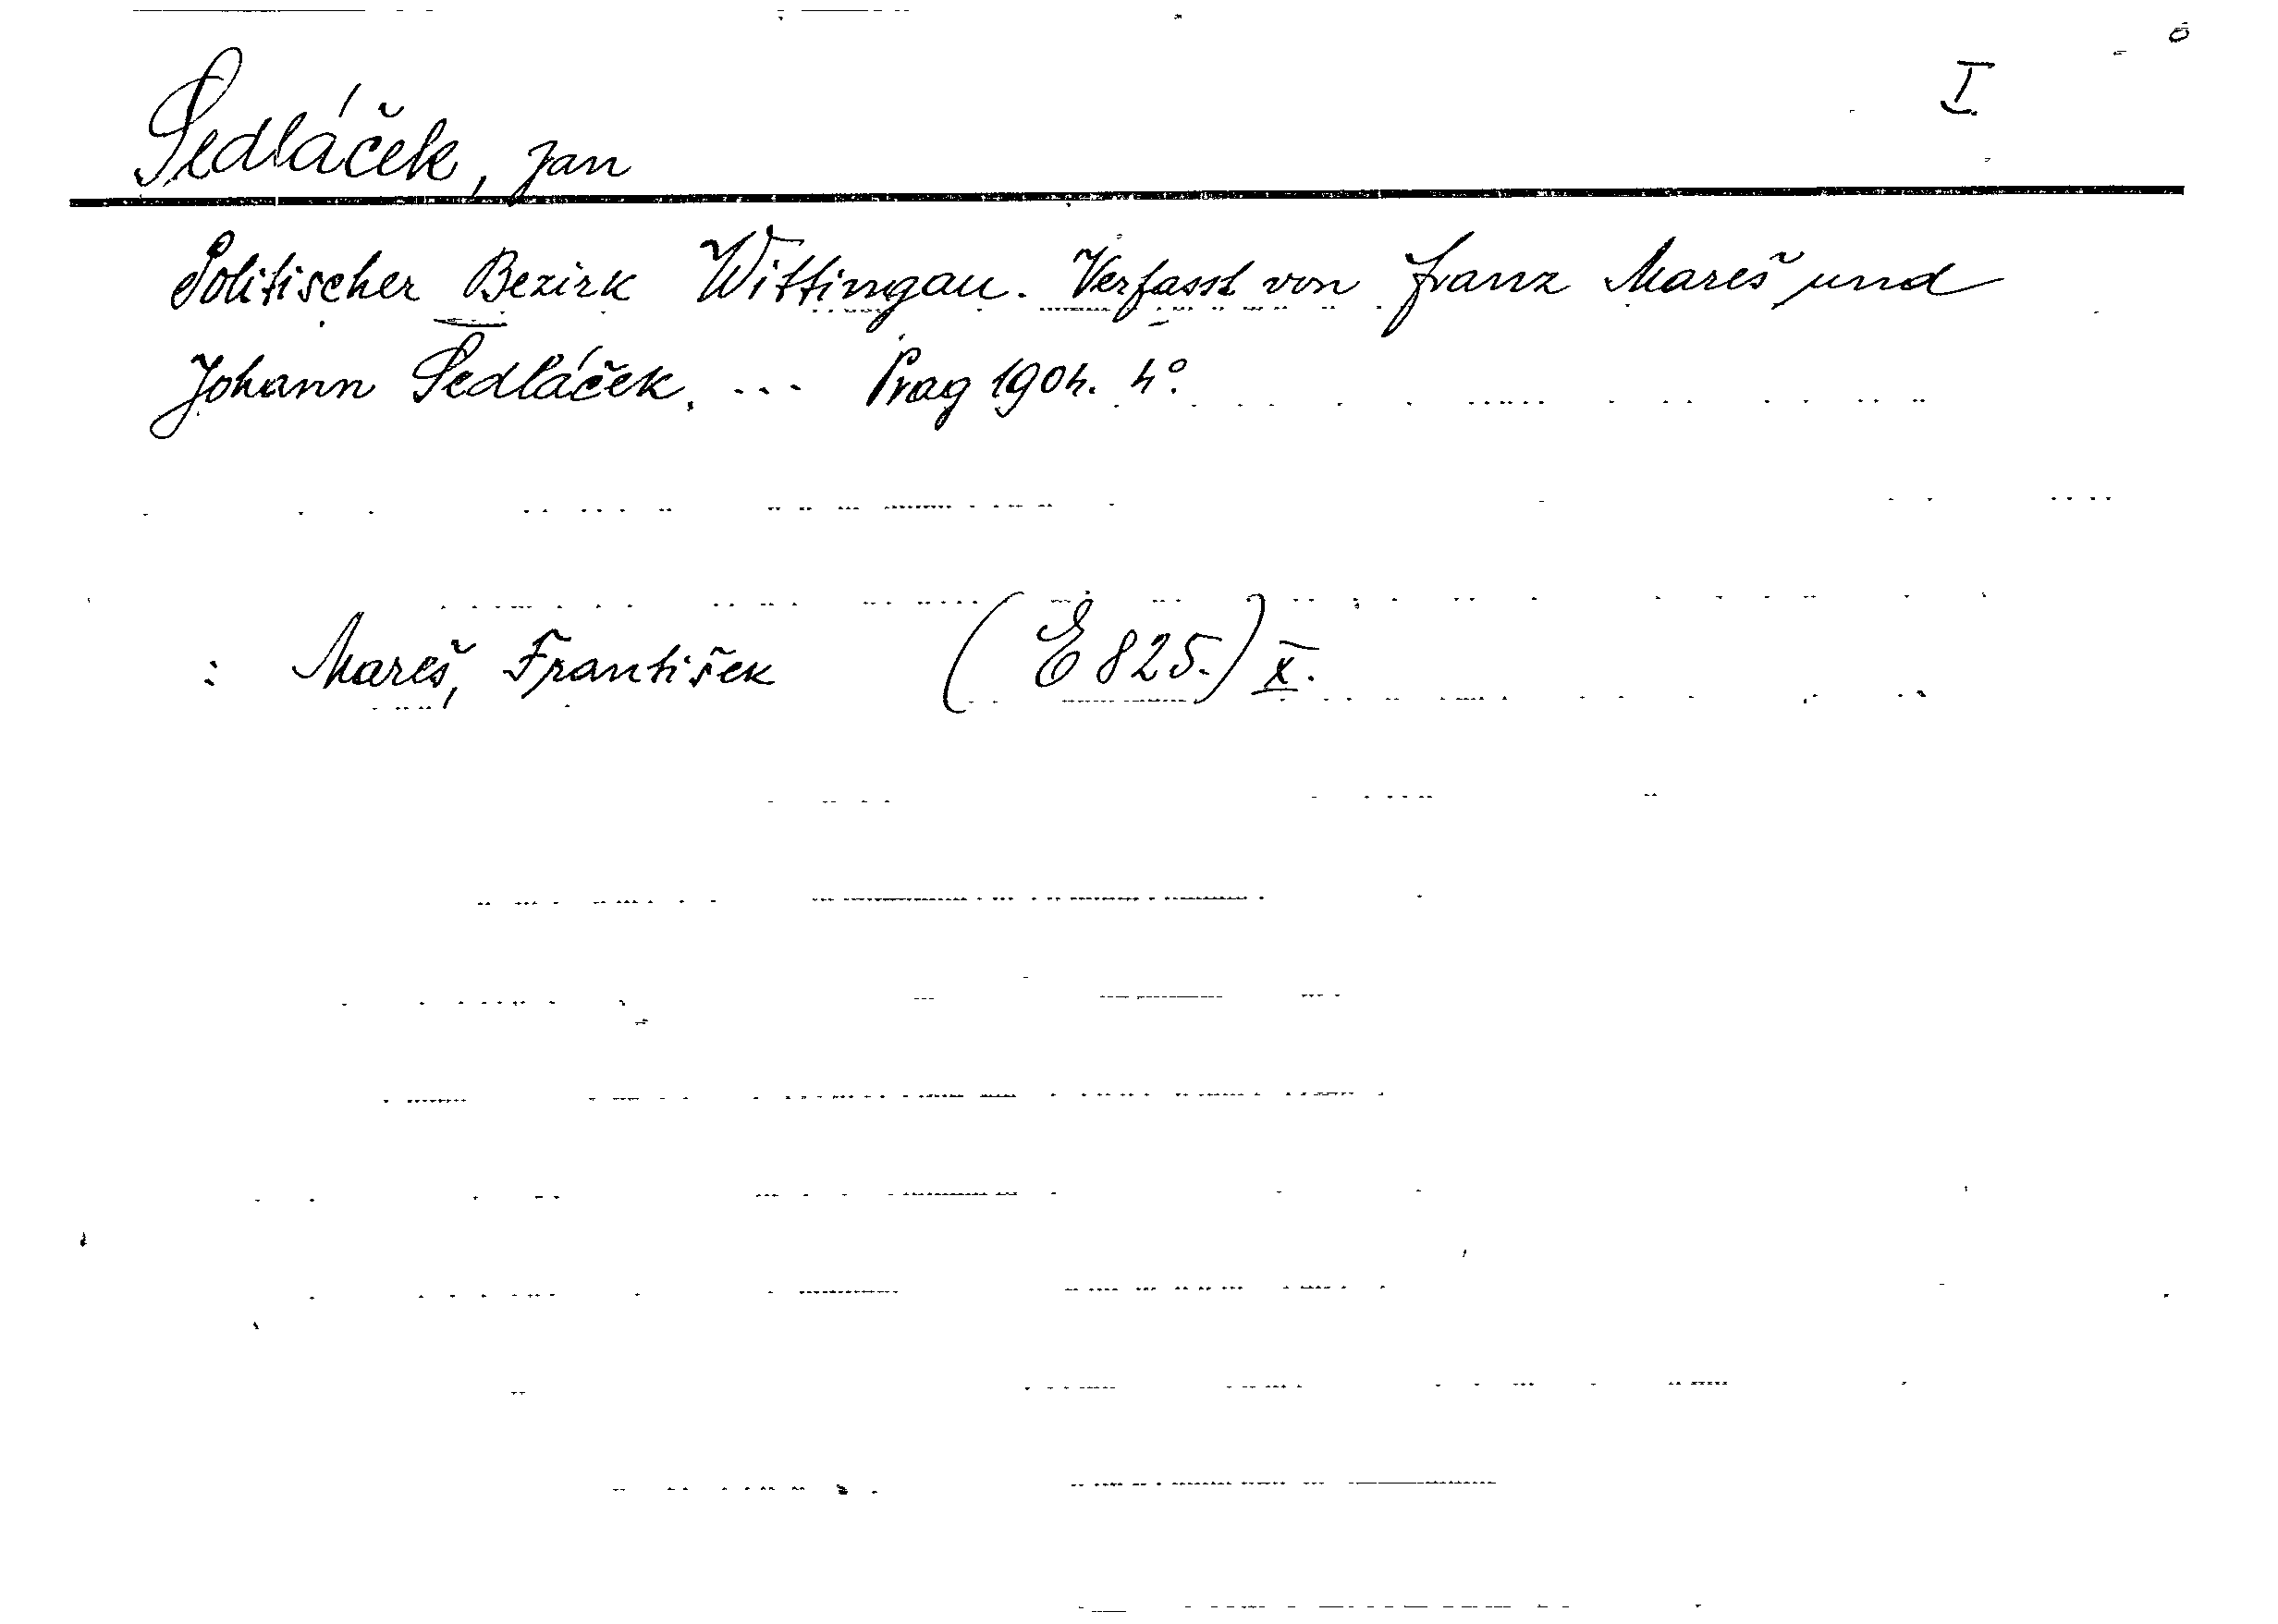 I.
Sedláček, Jan
Politischer Bezirk Wittingau. Verfasst von Franz Mareš und
Johann Sedláček. ... Prag 1904. 4°.
: Mareš, František (E 825.) X.